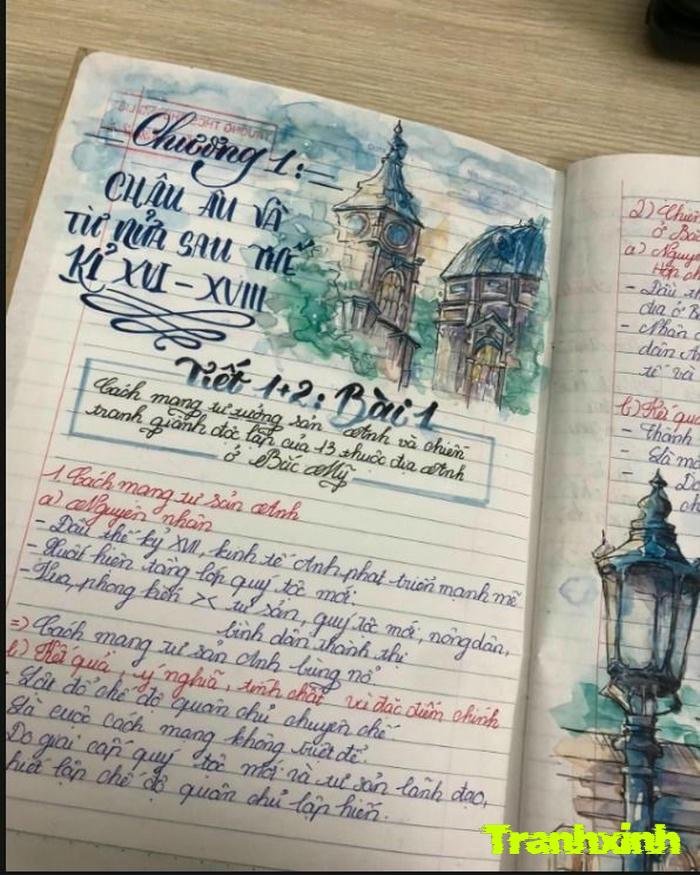 Chương 1:
CHÂU ÂU VÀ
TỪ NỬA SAU THẾ
KỈ XVI - XVIII
Tiết 1+2: Bài 1
Cách mạng tư tưởng sản Anh và chiến
tranh giành độc lập của 13 thuộc địa Anh
ở Bắc Mỹ
1. Cách mạng tư sản Anh
a) Nguyên nhân
- Đầu thế kỷ XVII, kinh tế Anh phát triển mạnh mẽ
- Xuất hiện tầng lớp quý tộc mới.
- Vua, phong kiến >< tư sản, quý tộc mới, nông dân,
bình dân thành thị
=> Cách mạng tư sản Anh bùng nổ
b) Kết quả, ý nghĩa, tính chất và đặc điểm chính
- Lật đổ chế độ quân chủ chuyên chế
Là cuộc cách mạng không triệt để.
Do giai cấp quý tộc mới và tư sản lãnh đạo,
thiết lập chế độ quân chủ lập hiến.
2) Chiến
ở Bắc
a) Nguyên
- Đầu th
địa ở B
- Nhân d
dân An
tế và
b) Kết quả
- Thành
- Là mộ
- Do
ch
Tranhxinh